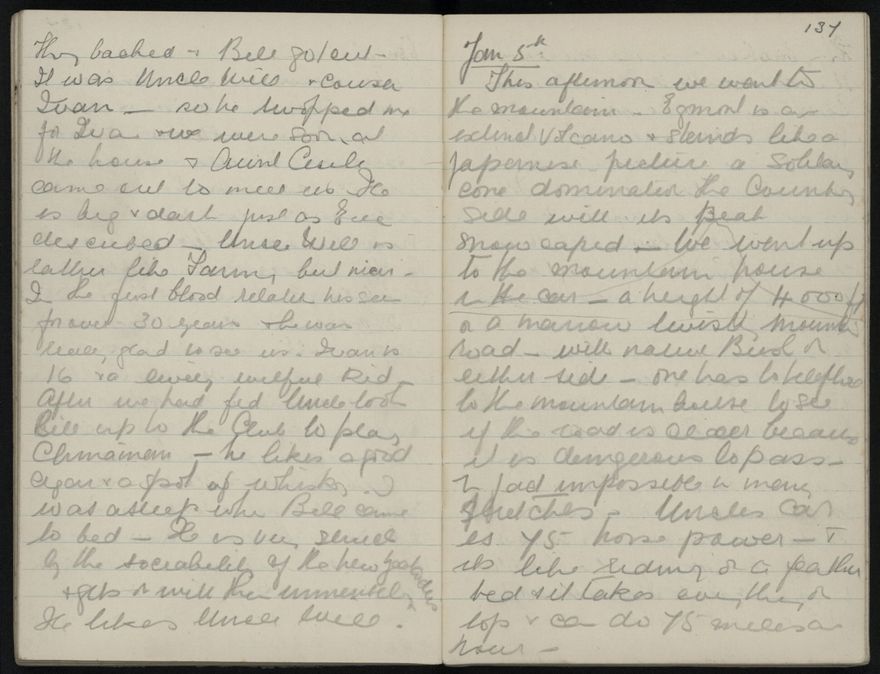 They backed + Bill got out -
It was Uncle Will + cousin
Ivan - so he swopped me
for Ivan + we were soon at
the house & Aunt Cecile
came out to meet us. He
is big & dark just as Eve
described - Uncle Will is
rather like Fanny but nicer -
I the first blood relation his seen
for over 30 years + he was
really glad to see us. Ivan is
16 + a lively wilful Kid -
After we had fed Uncle took
Bill up to the Club to play
Chinaman - he likes a good
cigar + a spot of whisky. I
was asleep when Bill came
to bed - He is very struck
by the sociability of the New Zealanders
+ gets on with them immensely
He likes Uncle Will.
137
Jan 5th
This afternoon we went to
the mountain - Egmont is an
extinct Volcano + stands like a
Japanese picture a solitary
cone dominating the Country
side with its peak
snow caped - We went up
to the mountain house
in the car - a height of 4000 ft
on a narrow twisty mountain
road - with native Bush on
either side - one has to telephone
to the mountain house to see
if the road is clear because
it is dangerous to pass -
in fact impossible in many
stretches - Uncles car
is 75 horse power - +
its like riding on a feather
bed + it takes everything on
top + can do 75 miles an
hour -